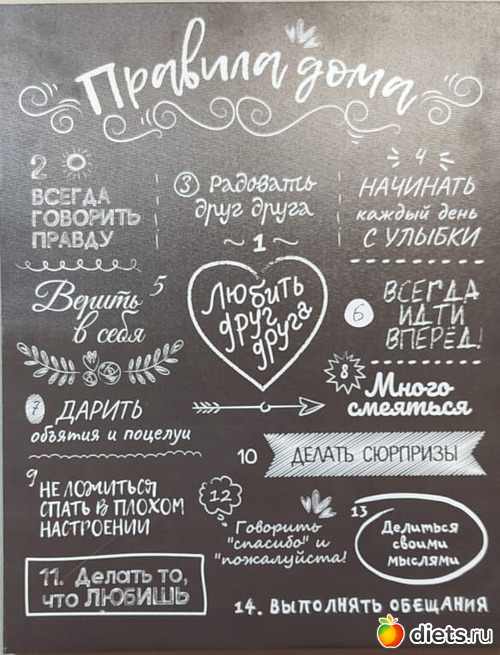 Правила дома
2
ВСЕГДА
ГОВОРИТЬ
ПРАВДУ
3 Радовать
друг друга
4
НАЧИНАТЬ
каждый день
С УЛЫБКИ
~ 1 ~
Любить
друг
друга
Верить 5
в себя
6
ВСЕГДА
ИДТИ
ВПЕРЁД!
7 ДАРИТЬ
объятия и поцелуи
8
Много
смеяться
9
НЕ ЛОЖИТЬСЯ
СПАТЬ В ПЛОХОМ
НАСТРОЕНИИ
10 ДЕЛАТЬ СЮРПРИЗЫ
11. Делать то,
что ЛЮБИШЬ
12
Говорить
"спасибо" и
"пожалуйста!
13
Делиться
своими
мыслями
14. ВЫПОЛНЯТЬ ОБЕЩАНИЯ
diets.ru